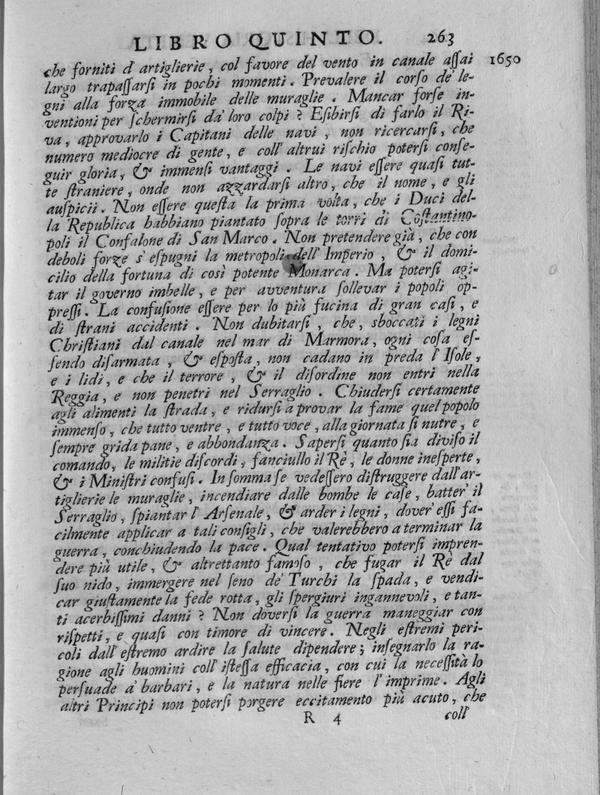 LIBRO QUINTO. 263
che forniti d'artiglierie, col favore del vento in canale aſſai 1650
largo trapaſſarſi in pochi momenti. Prevalere il corſo de' le-
gni alla forza immobile delle muraglie. Mancar forſe in-
ventioni per ſchermirſi da' loro colpi? Eſibirſi di farlo il Ri-
va, approvarlo i Capitani delle navi, non ricercarſi, che
numero mediocre di gente, e coll'altrui riſchio poterſi conſe-
guir gloria, & immenſi vantaggi. Le navi eſſere quaſi tut-
te ſtraniere, onde non azzardarſi altro, che il nome, e gli
auſpicii. Non eſſere queſta la prima volta, che i Duci del-
la Republica habbiano piantato ſopra le torri di Coſtantino-
poli il Confalone di San Marco. Non pretendere già, che con
deboli forze s'eſpugni la metropoli dell'Imperio, & il domi-
cilio della fortuna di così potente Monarca. Ma poterſi agi-
tar il governo imbelle, e per avventura ſollevar i popoli op-
preſſi. La confuſione eſſere per lo più fucina di gran caſi, e
di ſtrani accidenti. Non dubitarſi, che, sboccati i legni
Chriſtiani dal canale nel mar di Marmora, ogni coſa eſ-
ſendo diſarmata, & eſpoſta, non cadano in preda l'Iſole,
e i lidi, e che il terrore, & il diſordine non entri nella
Reggia, e non penetri nel Serraglio. Chiuderſi certamente
agli alimenti la ſtrada, e ridurſi a provar la fame quel popolo
immenſo, che tutto ventre, e tutto voce, alla giornata ſi nutre, e
ſempre grida pane, e abbondanza. Saperſi quanto ſia diviſo il
comando, le militie diſcordi, fanciullo il Rè, le donne ineſperte,
& i Miniſtri confuſi. In ſomma ſe vedeſſero diſtruggere dall'ar-
tiglierie le muraglie, incendiare dalle bombe le caſe, batter il
Serraglio, ſpiantar l'Arſenale, & arder i legni, dover'eſſi fa-
cilmente applicar a tali conſigli, che valerebbero a terminar la
guerra, conchiudendo la pace. Qual tentativo poterſi impren-
dere più utile, & altrettanto famoſo, che fugar il Rè dal
ſuo nido, immergere nel ſeno de' Turchi la ſpada, e vendi-
car giuſtamente la fede rotta, gli ſpergiuri ingannevoli, e tan-
ti acerbiſſimi danni? Non doverſi la guerra maneggiar con
riſpetti, e quaſi con timore di vincere. Negli eſtremi peri-
coli dall'eſtremo ardire la ſalute dipendere; inſegnarlo la ra-
gione agli huomini coll'iſteſſa efficacia, con cui la neceſſità lo
perſuade a' barbari, e la natura nelle fiere l'imprime. Agli
altri Principi non poterſi porgere eccitamento più acuto, che
R 4 coll'